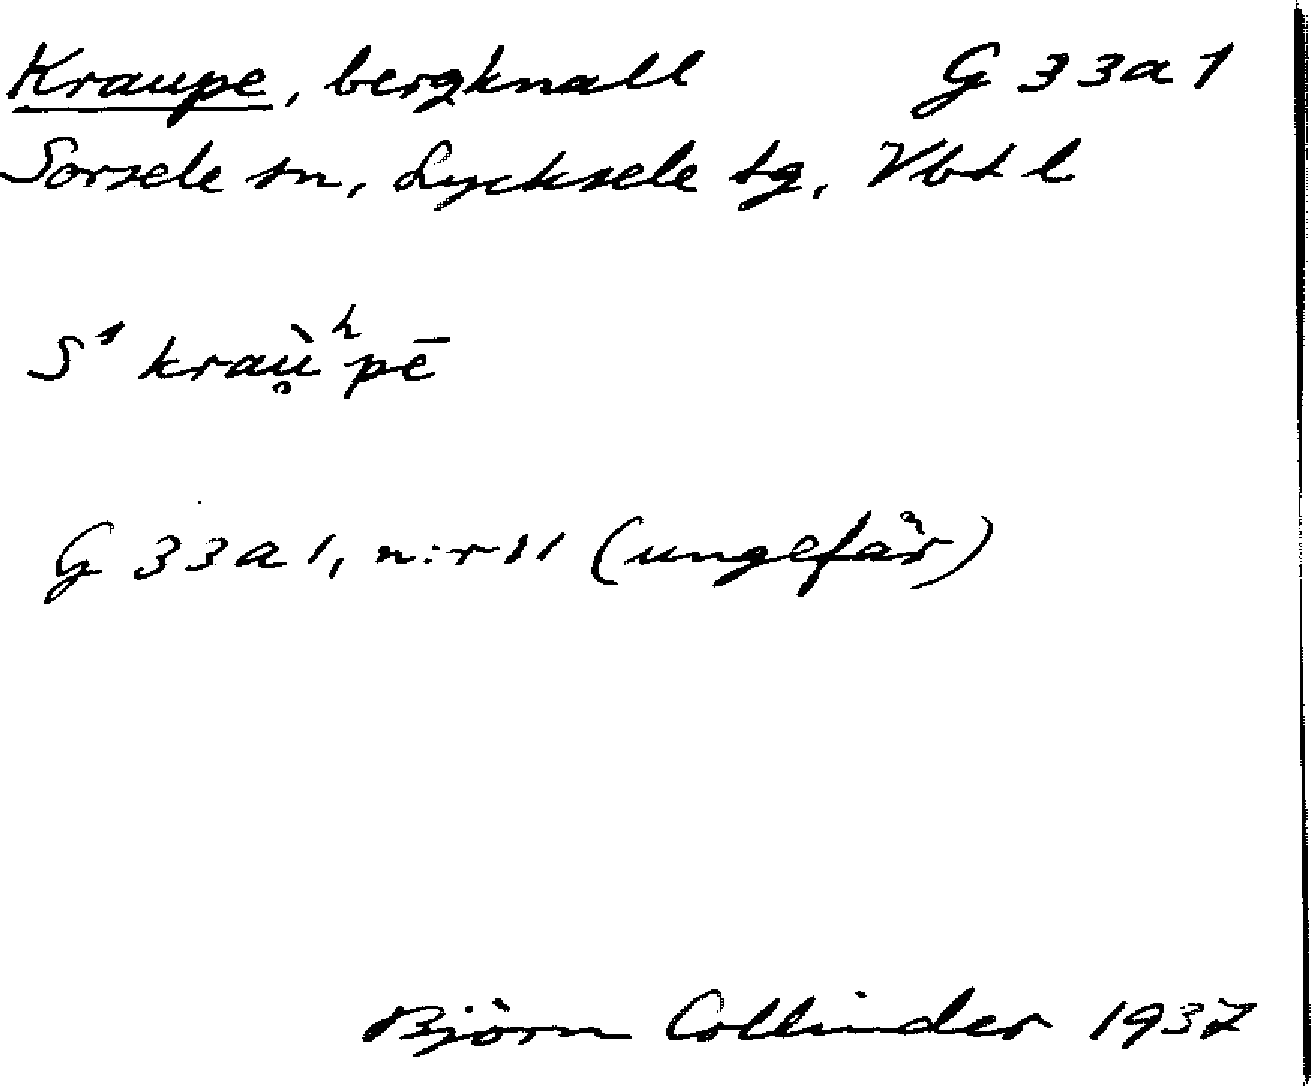 Kraupe, bergknall G 33a1
Sorsele sn, Lycksele tg, Vbtl
S¹ kraù̥ʰpē
G 33a1, n:r 11 (ungefär)
Björn Collinder 1937